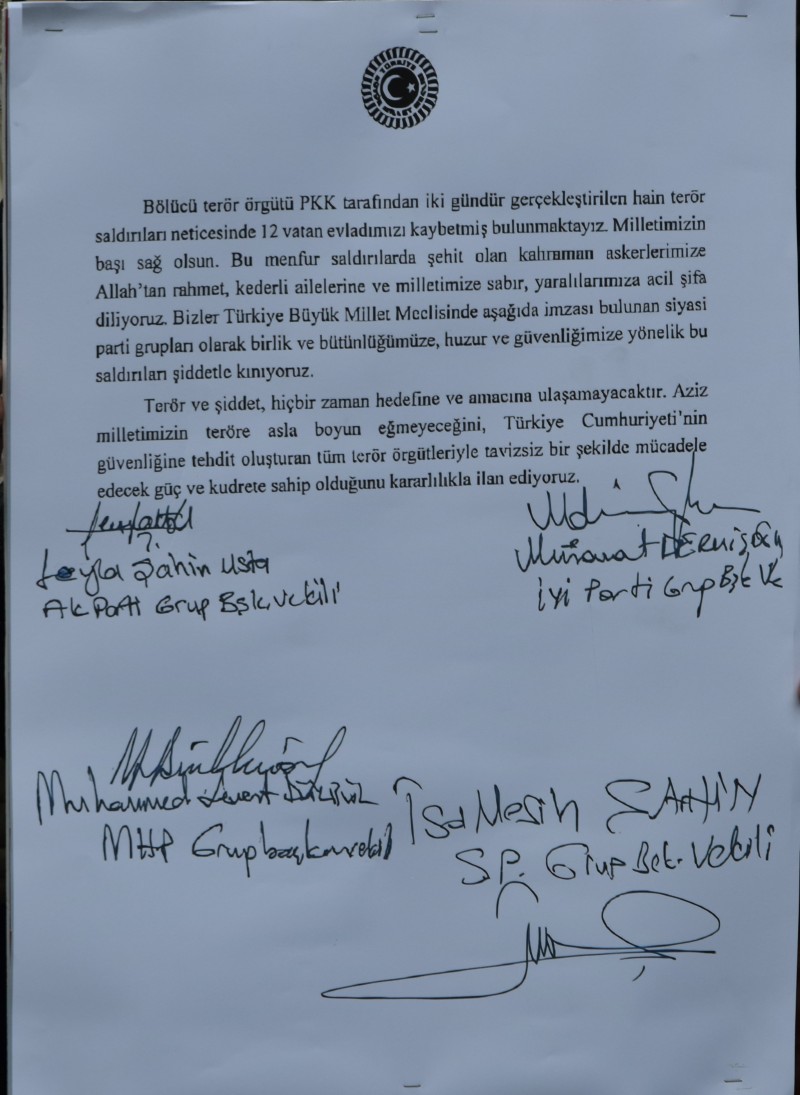 Bölücü terör örgütü PKK tarafından iki gündür gerçekleştirilen hain terör
saldırıları neticesinde 12 vatan evladımızı kaybetmiş bulunmaktayız. Milletimizin
başı sağ olsun. Bu menfur saldırılarda şehit olan kahraman askerlerimize
Allah'tan rahmet, kederli ailelerine ve milletimize sabır, yaralılarımıza acil şifa
diliyoruz. Bizler Türkiye Büyük Millet Meclisinde aşağıda imzası bulunan siyasi
parti grupları olarak birlik ve bütünlüğümüze, huzur ve güvenliğimize yönelik bu
saldırıları şiddetle kınıyoruz.
Terör ve şiddet, hiçbir zaman hedefine ve amacına ulaşamayacaktır. Aziz
milletimizin teröre asla boyun eğmeyeceğini, Türkiye Cumhuriyeti'nin
güvenliğine tehdit oluşturan tüm terör örgütleriyle tavizsiz bir şekilde mücadele
edecek güç ve kudrete sahip olduğunu kararlılıkla ilan ediyoruz.
Leyla Şahin Usta
Ak Parti Grup Bşk.Vekili
DERVİŞOĞLU
İyi Parti Grup Bşk Vk
Muhammed Levent BÜLBÜL
MHP Grupbaşkanvekili
İsa Mesih ŞAHİN
S.P. Grup Bşk. Vekili